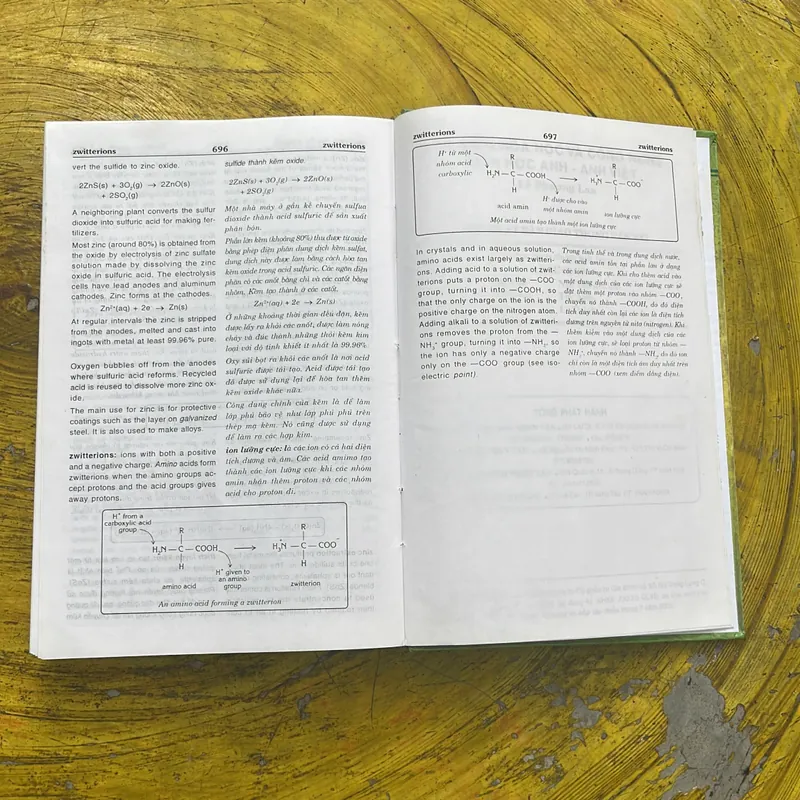 zwitterions 696 zwitterions
vert the sulfide to zinc oxide.
2ZnS(s) + 3O₂(g) → 2ZnO(s)
+ 2SO₂(g)
A neighboring plant converts the sulfur
dioxide into sulfuric acid for making fer-
tilizers.
Most zinc (around 80%) is obtained from
the oxide by electrolysis of zinc sulfate
solution made by dissolving the zinc
oxide in sulfuric acid. The electrolysis
cells have lead anodes and aluminum
cathodes. Zinc forms at the cathodes.
Zn²⁺(aq) + 2e → Zn(s)
At regular intervals the zinc is stripped
from the anodes, melted and cast into
ingots with metal at least 99.96% pure.
Oxygen bubbles off from the anodes
where sulfuric acid reforms. Recycled
acid is reused to dissolve more zinc ox-
ide.
The main use for zinc is for protective
coatings such as the layer on galvanized
steel. It is also used to make alloys.
zwitterions: ions with both a positive
and a negative charge. Amino acids form
zwitterions when the amino groups ac-
cept protons and the acid groups gives
away protons.
sulfide thành kẽm oxide.
2ZnS(s) + 3O₂(g) → 2ZnO(s)
+ 2SO₂(g)
Một nhà máy ở gần kề chuyển sulfua
dioxide thành acid sulfuric để sản xuất
phân bón.
Phần lớn kẽm (khoảng 80%) thu được từ oxide
bằng phép điện phân dung dịch kẽm sulfat,
dung dịch này được làm bằng cách hòa tan
kẽm oxide trong acid sulfuric. Các ngăn điện
phân có các anốt bằng chì và các catốt bằng
nhôm. Kẽm tạo thành ở các catốt.
Zn²⁺(aq) + 2e → Zn(s)
Ở những khoảng thời gian đều đặn, kẽm
được lấy ra khỏi các anốt, được làm nóng
chảy và đúc thành những thỏi kẽm kim
loại với độ tinh khiết ít nhất là 99.96%.
Oxy sủi bọt ra khỏi các anốt là nơi acid
sulfuric được tái tạo. Acid được tái tạo
đã được sử dụng lại để hòa tan thêm
kẽm oxide khác nữa.
Công dụng chính của kẽm là để làm
lớp phủ bảo vệ như lớp phủ phủ trên
thép mạ kẽm. Nó cũng được sử dụng
để làm ra các hợp kim.
ion lưỡng cực: là các ion có cả hai điện
tích dương và âm. Các acid amino tạo
thành các ion lưỡng cực khi các nhóm
amin nhận thêm proton và các nhóm
acid cho proton đi.
H⁺ from a
carboxylic acid
group
R
H₂N—C—COOH
H
→
R
H₃N⁺—C—COO⁻
H
H⁺ given to
an amino
group
amino acid
zwitterion
An amino acid forming a zwitterion
zwitterions 697 zwitterions
H⁺ từ một
nhóm acid
carboxylic
R
H₂N—C—COOH
H
→
R
H₃N⁺—C—COO⁻
H
H⁺ được cho vào
một nhóm amin
acid amin
ion lưỡng cực
Một acid amin tạo thành một ion lưỡng cực
In crystals and in aqueous solution,
amino acids exist largely as zwitteri-
ons. Adding acid to a solution of zwit-
terions puts a proton on the —COO⁻
group, turning it into —COOH, so
that the only charge on the ion is the
positive charge on the nitrogen atom.
Adding alkali to a solution of zwitteri-
ons removes the proton from the —
NH₃⁺ group, turning it into —NH₂, so
the ion has only a negative charge
only on the —COO⁻ group (see iso-
electric point)
Trong tinh thể và trong dung dịch nước,
các acid amin tồn tại phần lớn ở dạng
các ion lưỡng cực. Khi cho thêm acid vào
một dung dịch của các ion lưỡng cực sẽ
đặt thêm một proton vào nhóm —COO⁻,
chuyển nó thành —COOH, do đó điện
tích duy nhất còn lại các ion là điện tích
dương trên nguyên tử nitơ (nitrogen). Khi
thêm kiềm vào một dung dịch của các
ion lưỡng cực, sẽ loại proton từ nhóm —
NH₃⁺, chuyển nó thành —NH₂, do đó ion
chỉ còn là một điện tích âm duy nhất trên
nhóm —COO⁻ (xem điểm đẳng điện).